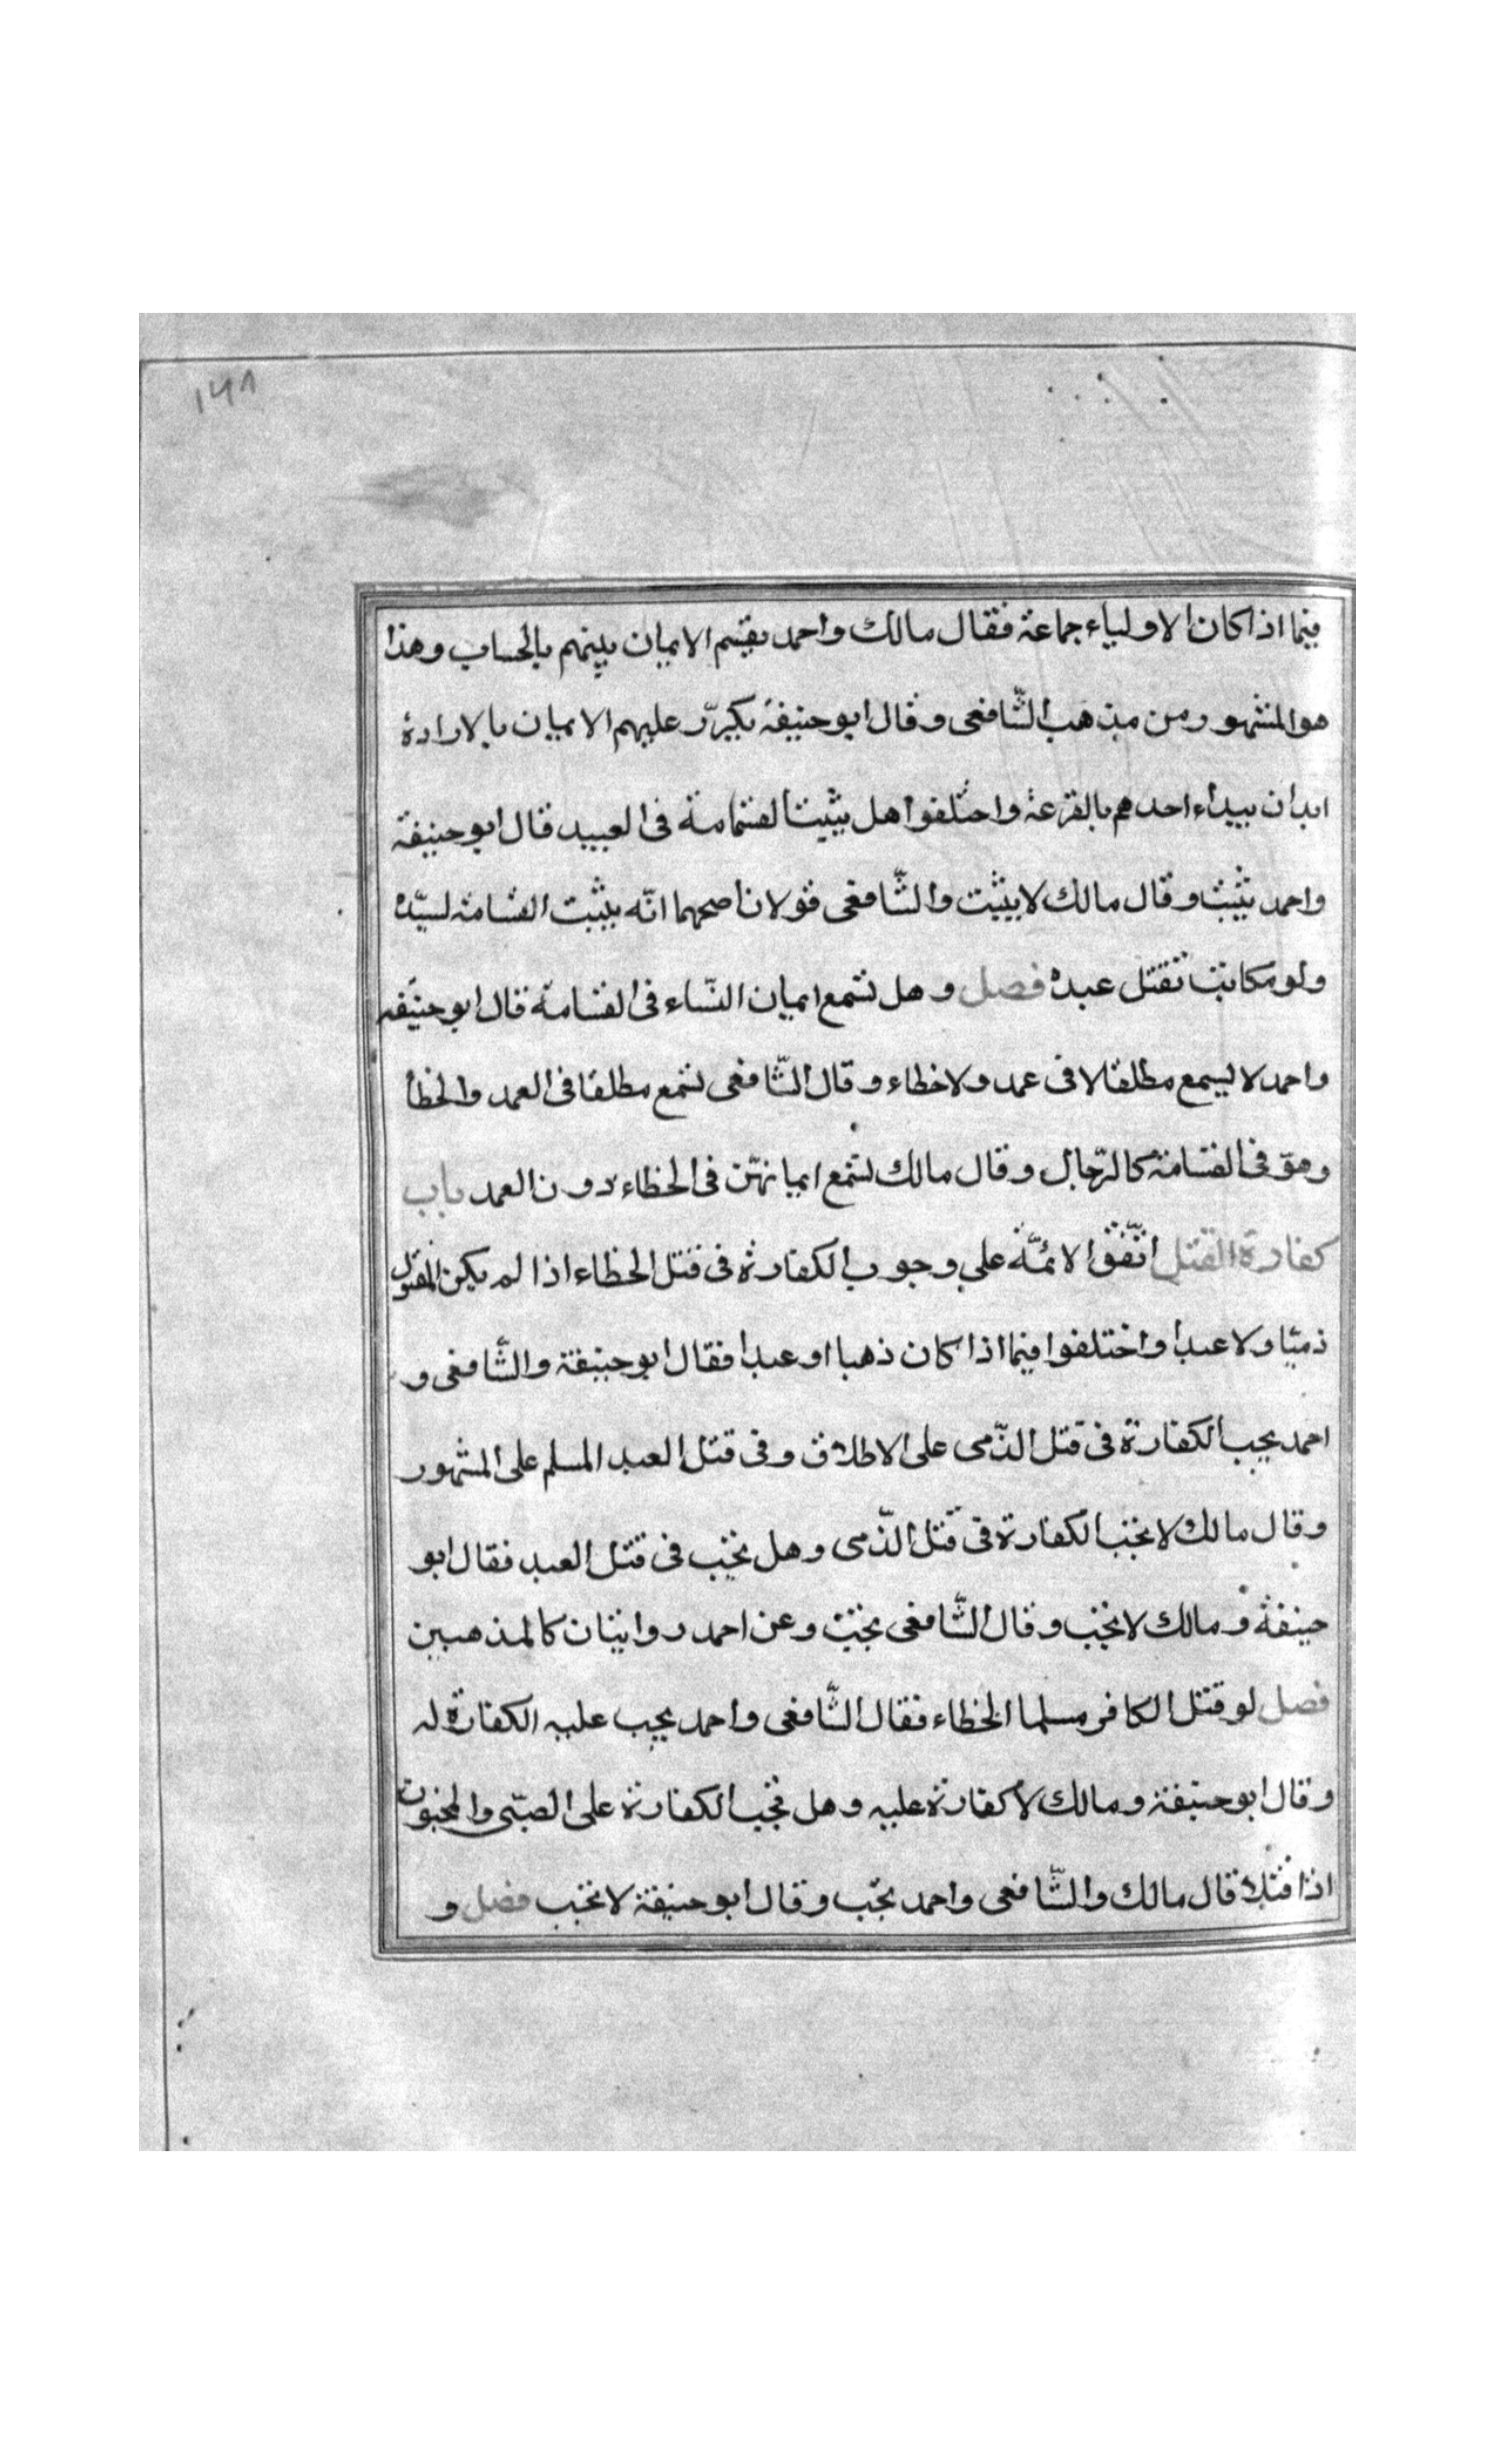 ١٤٨
فيما اذا كان الاولياء جماعة فقال مالك واحمد يقسم الايمان بينهم بالحساب وهذا
هو المشهور من مذهب الشّافعى وقال ابو حنيفة يكرّر عليهم الايمان بالارادة
ابدان يبداء احدهم بالقرعة واختلفوا هل يثبت القسامة فى العبيد قال ابو حنيفة
واحمد يثبت وقال مالك لا يثبت والشّافعى قولان اصحهما انّه يثبت القسامة لسيّده
ولو مكاتبا بقتل عبده فصل وهل تسمع ايمان النّساء فى القسامة قال ابو حنيفه
واحمد لا يسمع مطلقا لا فى عمد ولا خطاء وقال الشّافعى تسمع مطلقا فى العمد والخطأ
وهو فى القسامة كالرّجال وقال مالك تسمع ايمانهنّ فى الخطاء دون العمد باب
كفارة القتل اتّفق الائمّة على وجوب الكفارة فى قتل الخطاء اذا لم يكن المقتول
ذميّا ولا عبدا واختلفوا فيما اذا كان ذهبا او عبدا فقال ابو حنيفة والشّافعى و
احمد يجب الكفارة فى قتل الذّمى على الاطلاق وفى قتل العبد المسلم على المشهور
وقال مالك لا تجب الكفارة فى قتل الذّمى وهل تجب فى قتل العبد فقال ابو
حنيفة و مالك لا تجب وقال الشّافعى تجب وعن احمد روايتان كالمذهبين
فصل لو قتل الكافر مسلما الخطاء فقال الشّافعى واحمد يجب عليه الكفارة له
وقال ابو حنيفة ومالك لا كفارة عليه وهل تجب الكفارة على الصبّى والمجنون
اذا قتلا قال مالك والشّافعى واحمد تجب وقال ابو حنيفة لا تجب فصل و